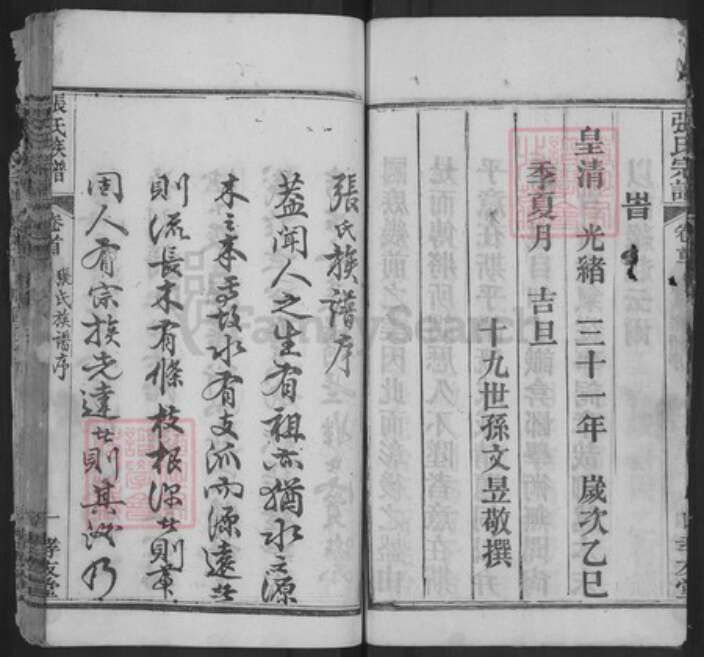 張氏宗譜
旹
皇清 光緒 三十一年 歲次乙巳
季夏月 吉旦
十九世孫文昱敬撰
張氏族譜序
蓋聞人之生有祖亦猶水之源
木之本焉故水有支派而源遠者
則流長木有條枝根深者則葉
固人有宗族先達者則其後乃
張氏族譜 卷首 張氏族譜序 一 孝友堂
FamilySearch